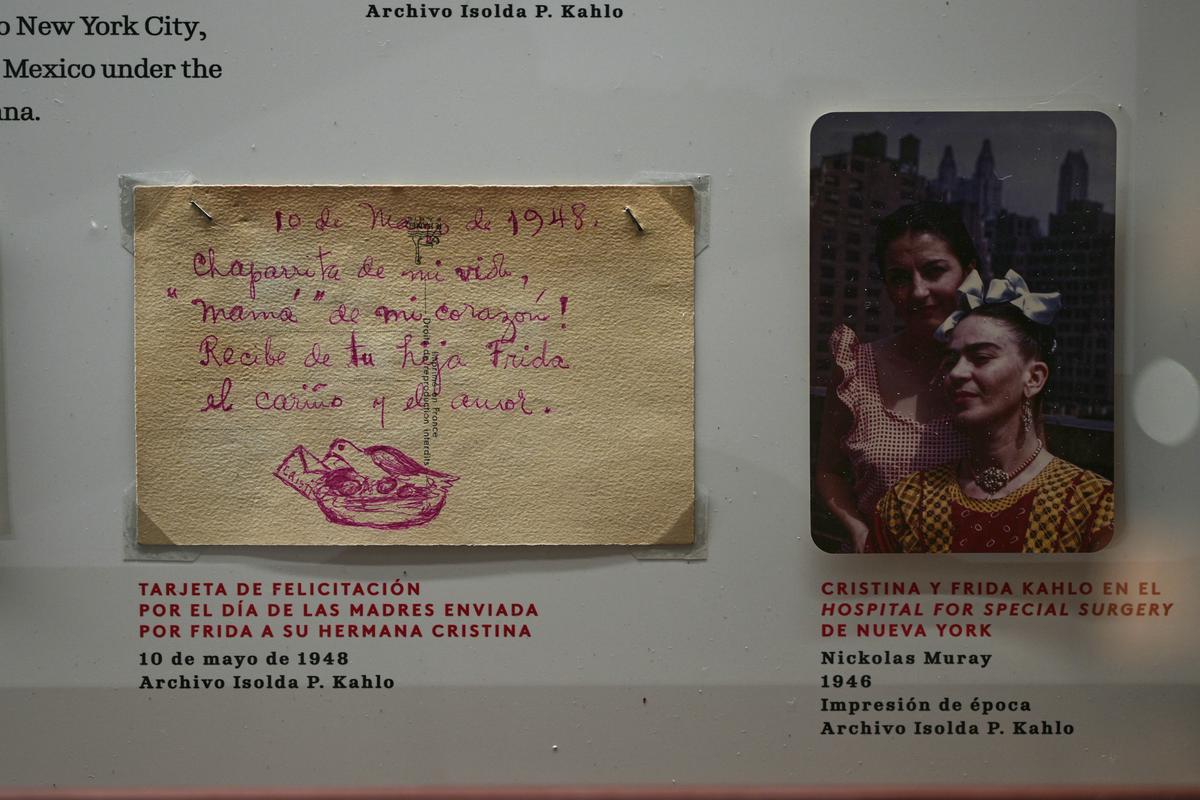 o New York City,
Mexico under the
na.
Archivo Isolda P. Kahlo
10 de Mayo de 1948.
Chaparrita de mi vida,
"mamá" de mi corazón!
Recibe de tu hija Frida
el cariño y el amor.
Droits de reproduction interdits
France
TARJETA DE FELICITACIÓN
POR EL DÍA DE LAS MADRES ENVIADA
POR FRIDA A SU HERMANA CRISTINA
10 de mayo de 1948
Archivo Isolda P. Kahlo
CRISTINA Y FRIDA KAHLO EN EL
HOSPITAL FOR SPECIAL SURGERY
DE NUEVA YORK
Nickolas Muray
1946
Impresión de época
Archivo Isolda P. Kahlo